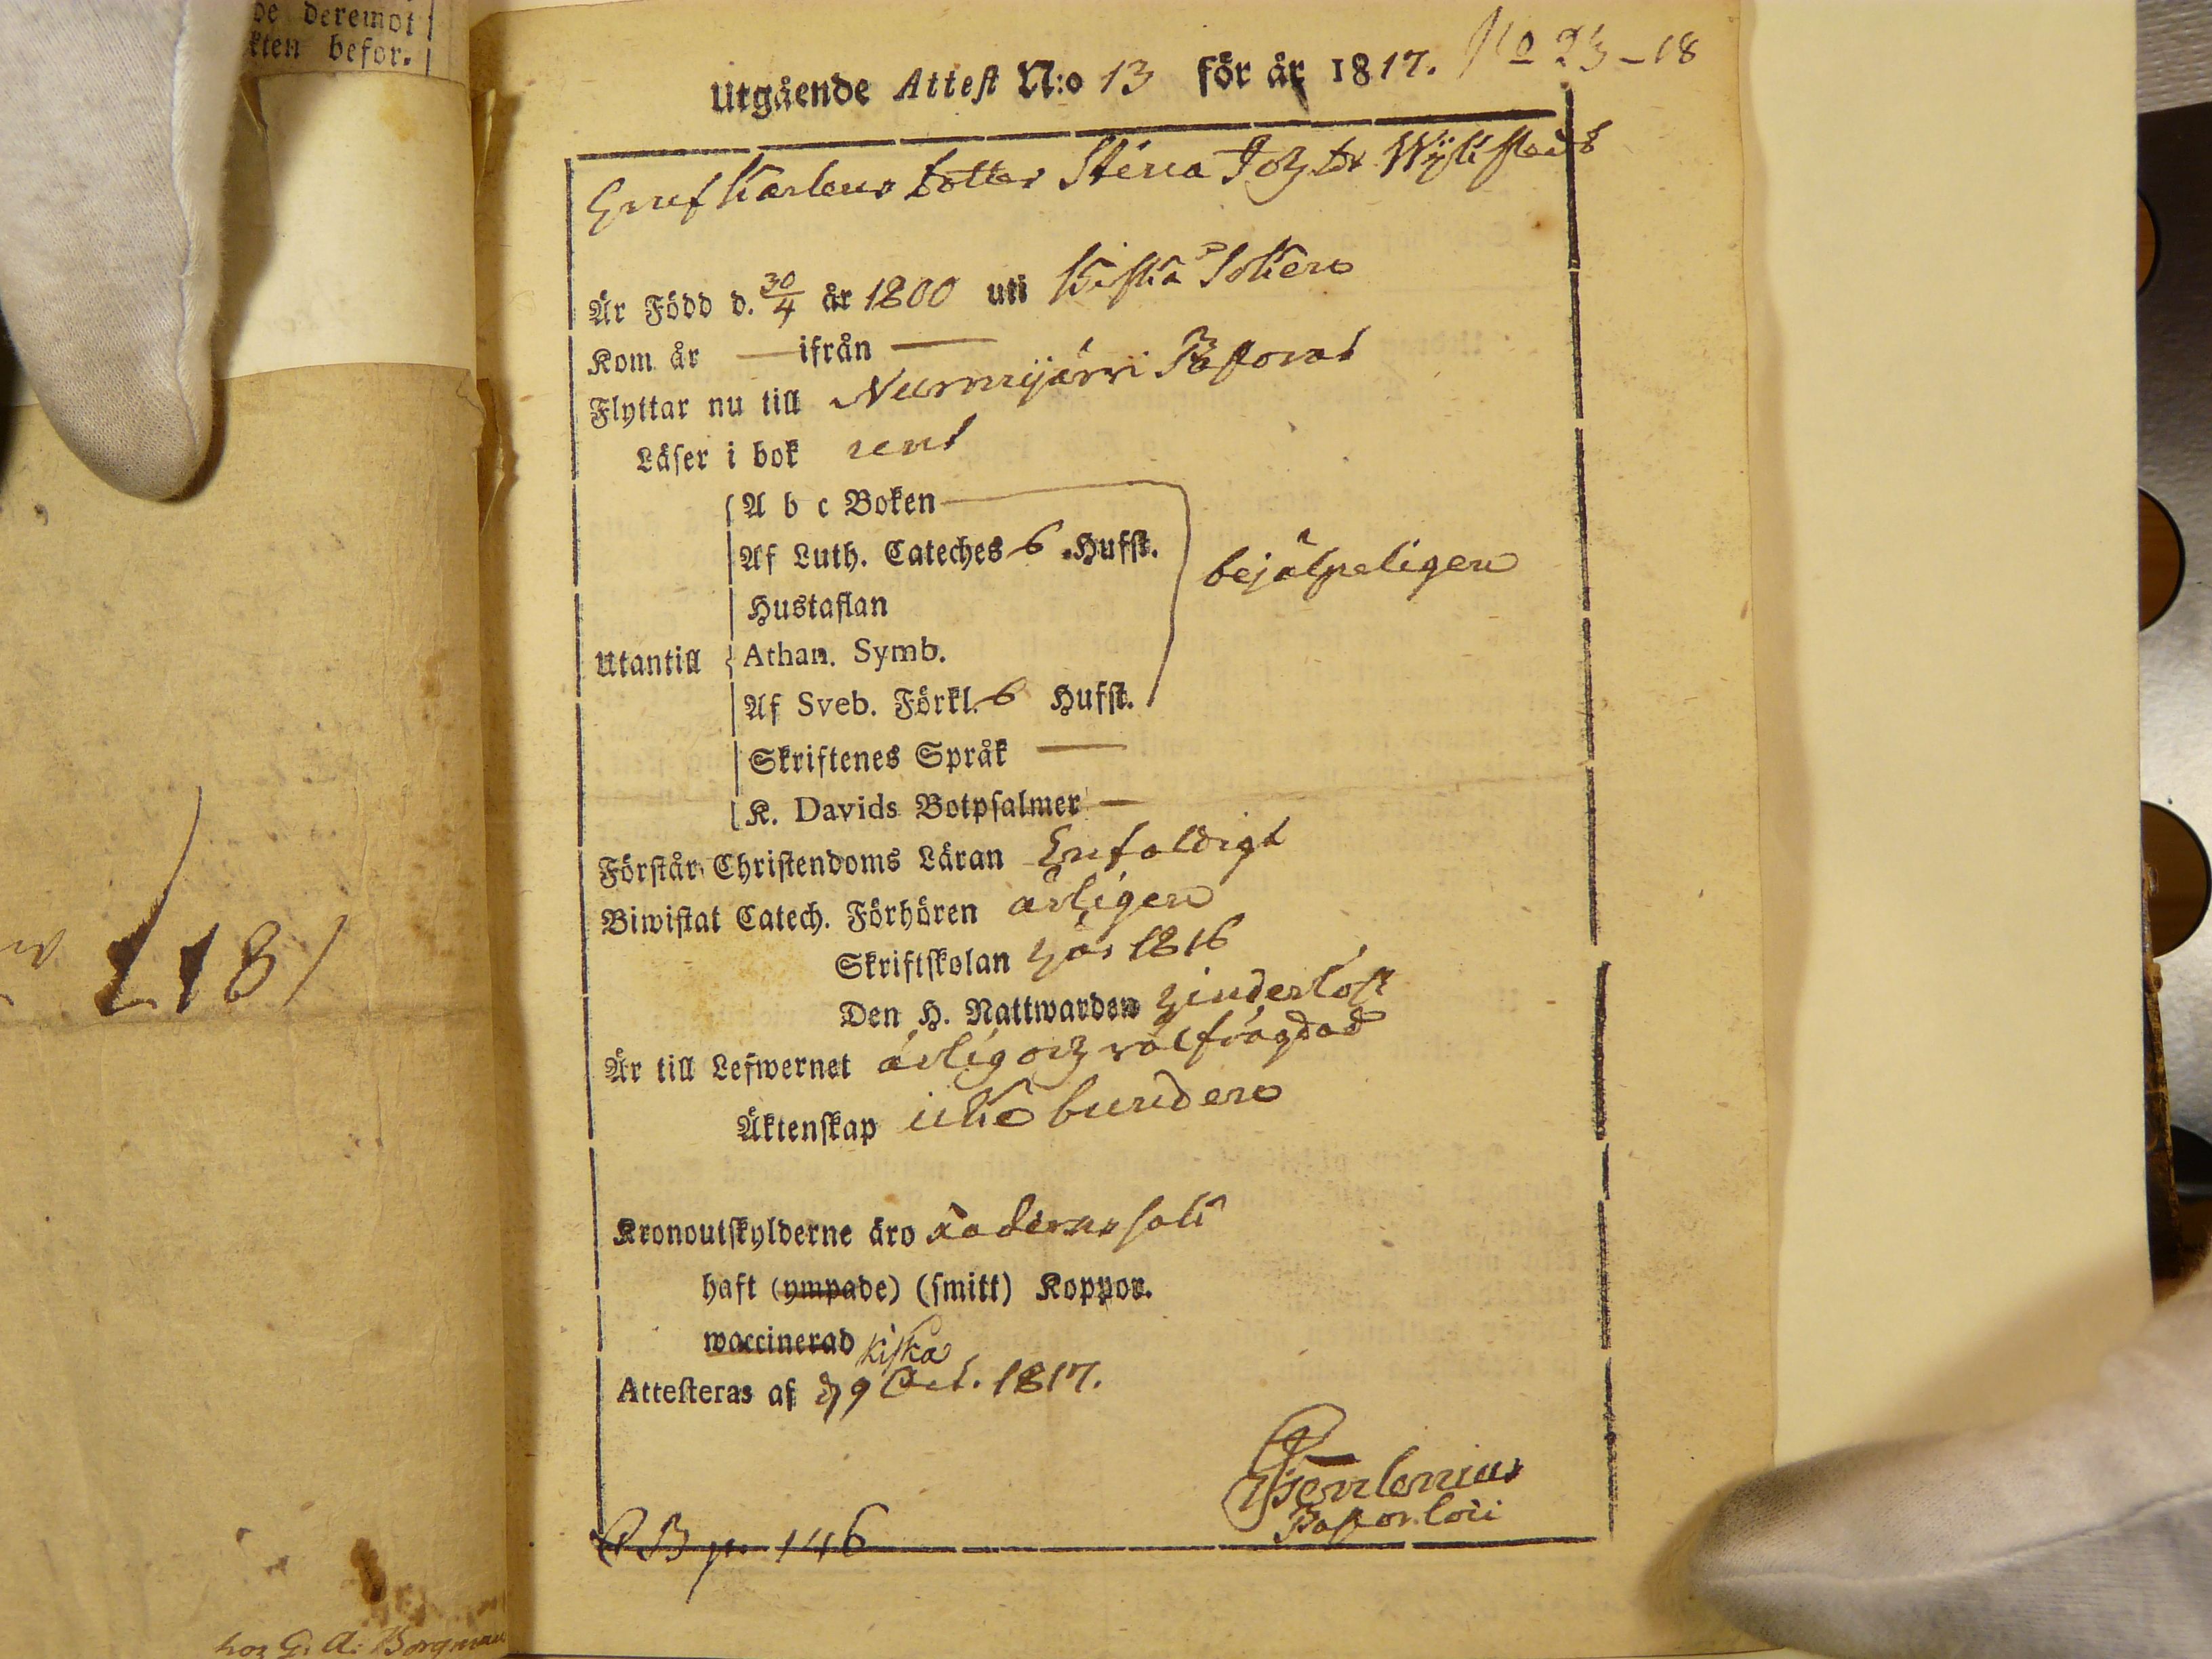 de deremot
kten befor.
L181
hos G. A. Borgman
No 23-18
Utgående Attest N:o 13 för år 1817.
Enkf Karlens dotter Stina Joh dr
Är Född d. 30/4 år 1800 uti Kiska Soken
Kom år — ifrån —
Flyttar nu till Nurmijärvi Pastorat
Läser i bok rent
A b c Boken
Af Luth. Cateches 6 Hufst.
bejälpeligen
Hustaflan
Utantill Athan. Symb.
Af Sveb. Förkl. 6 Hufst.
Skriftenes Språk —
K. Davids Botpsalmer —
Förstår Christendoms Läran Enfaldigt
Biwistat Catech. Förhören årligen
Skriftskolan här 1816
Den H. Nattwarden hinderlöst
Är till Lefwernet ärlig och välfrägdad
Äktenskap icke bunden
Kronoutskylderne äro
haft (ympade) (smitt) Koppor.
waccinerad Kiska
Attesteras af d 9 Oct. 1817.
Pastor loci
CB p. 146